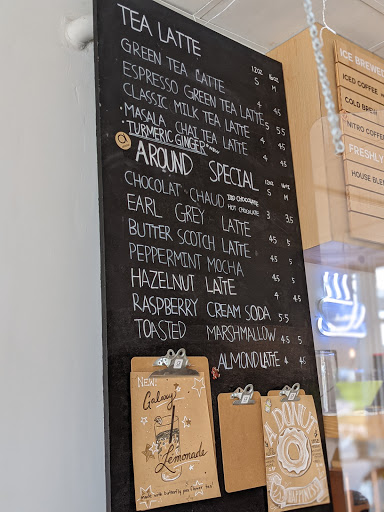 TEA LATTE
12OZ 16OZ
GREEN TEA LATTE S M
ESPRESSO GREEN TEA LATTE 4 4.5
CLASSIC MILK TEA LATTE 5 5.5
• MASALA CHAI TEA LATTE 4 4.5
• TURMERIC GINGER 4 4.5
AROUND SPECIAL 12OZ 16OZ
CHOCOLAT CHAUD ICED CHOCOLATE HOT CHOCOLATE S M
EARL GREY LATTE 3 3.5
BUTTER SCOTCH LATTE 4.5 5
PEPPERMINT MOCHA 4.5 5
HAZELNUT LATTE 4.5 5
RASPBERRY CREAM SODA 4 4.5
TOASTED MARSHMALLOW 5 5.5
ALMOND LATTE 4.5 5
4 4.5
ICE BREWED
ICED COFFEE
COLD BREW
NITRO COFFEE
FRESHLY
HOUSE BLE
NEW!
Galaxy
Lemonade
made with butterfly pea flower tea!
A DONUT